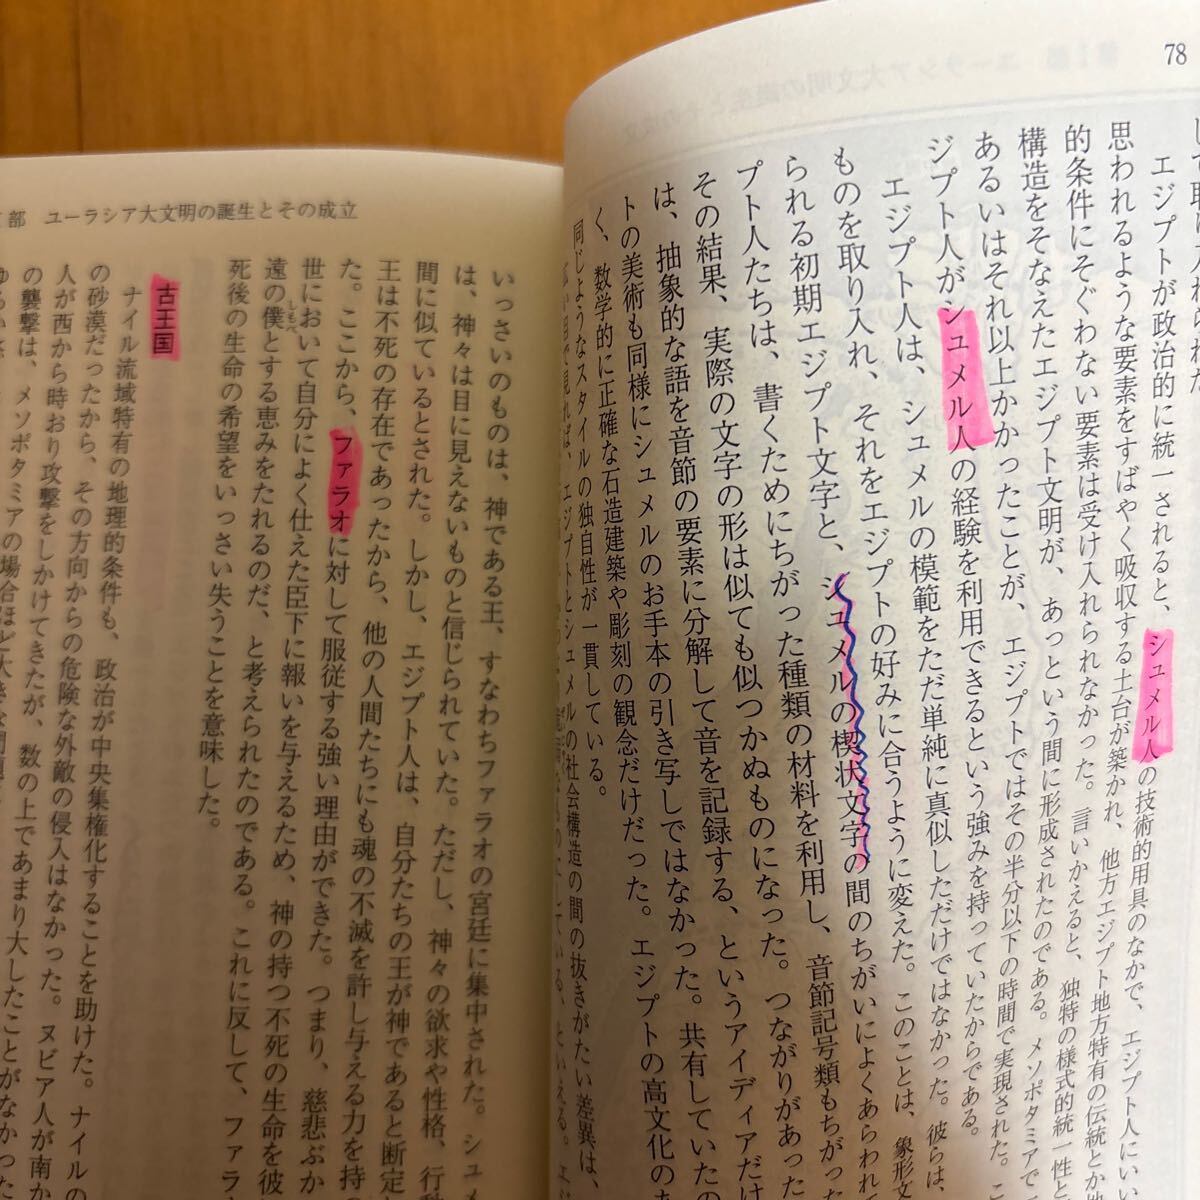 78
して取り入れられた
エジプトが政治的に統一されると、シュメル人の技術的用具のなかで、エジプト人にい
思われるような要素をすばやく吸収する土台が築かれ、他方エジプト地方特有の伝統とか地
的条件にそぐわない要素は受け入れられなかった。言いかえると、独特の様式的統一性と
構造をそなえたエジプト文明が、あっという間に形成されたのである。メソポタミアで
あるいはそれ以上かかったことが、エジプトではその半分以下の時間で実現された。こ
ジプト人がシュメル人の経験を利用できるという強みを持っていたからである。
エジプト人は、シュメルの模範をただ単純に真似しただけではなかった。彼らは、
ものを取り入れ、それをエジプトの好みに合うように変えた。このことは、象形文
られる初期エジプト文字と、シュメルの楔状文字の間のちがいによくあらわれて
プト人たちは、書くためにちがった種類の材料を利用し、音節記号類もちがった
その結果、実際の文字の形は似ても似つかぬものになった。つながりがあった
は、抽象的な語を音節の要素に分解して音を記録する、というアイディアだけ
トの美術も同様にシュメルのお手本の引き写しではなかった。共有していたの
く、数学的に正確な石造建築や彫刻の観念だけだった。エジプトの高文化のあ
同じようなスタイルの独自性が一貫している。
広い目で見れば、エジプトとシュメルの社会構造の間の抜きがたい差異は、
部 ユーラシア大文明の誕生とその成立
いっさいのものは、神である王、すなわちファラオの宮廷に集中された。シュメ
は、神々は目に見えないものと信じられていた。ただし、神々の欲求や性格、行動
間に似ているとされた。しかし、エジプト人は、自分たちの王が神であると断定し
王は不死の存在であったから、他の人間たちにも魂の不滅を許し与える力を持
た。ここから、ファラオに対して服従する強い理由ができた。つまり、慈悲ぶか
世において自分によく仕えた臣下に報いを与えるため、神の持つ不死の生命を彼
遠の僕とする恵みをたれるのだ、と考えられたのである。これに反して、ファラ
しもべ
死後の生命の希望をいっさい失うことを意味した。
古王国
ナイル流域特有の地理的条件も、政治が中央集権化することを助けた。ナイルの
の砂漠だったから、その方向からの危険な外敵の侵入はなかった。ヌビア人が南か
人が西から時おり攻撃をしかけてきたが、数の上であまり大したことがなかった
の襲撃は、メソポタミアの場合ほど大きな問題